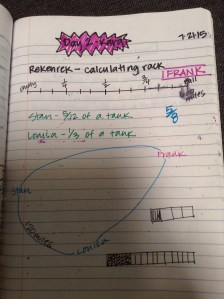 Day 2 - Kara
7-21-15
Rekenrek - calculating rack
FRANK
empty 1/4 1/2 3/4 full
5/8
Stan - 5/12 of a tank
Louisa - 1/3 of a tank
Frank
Stan
Louisa